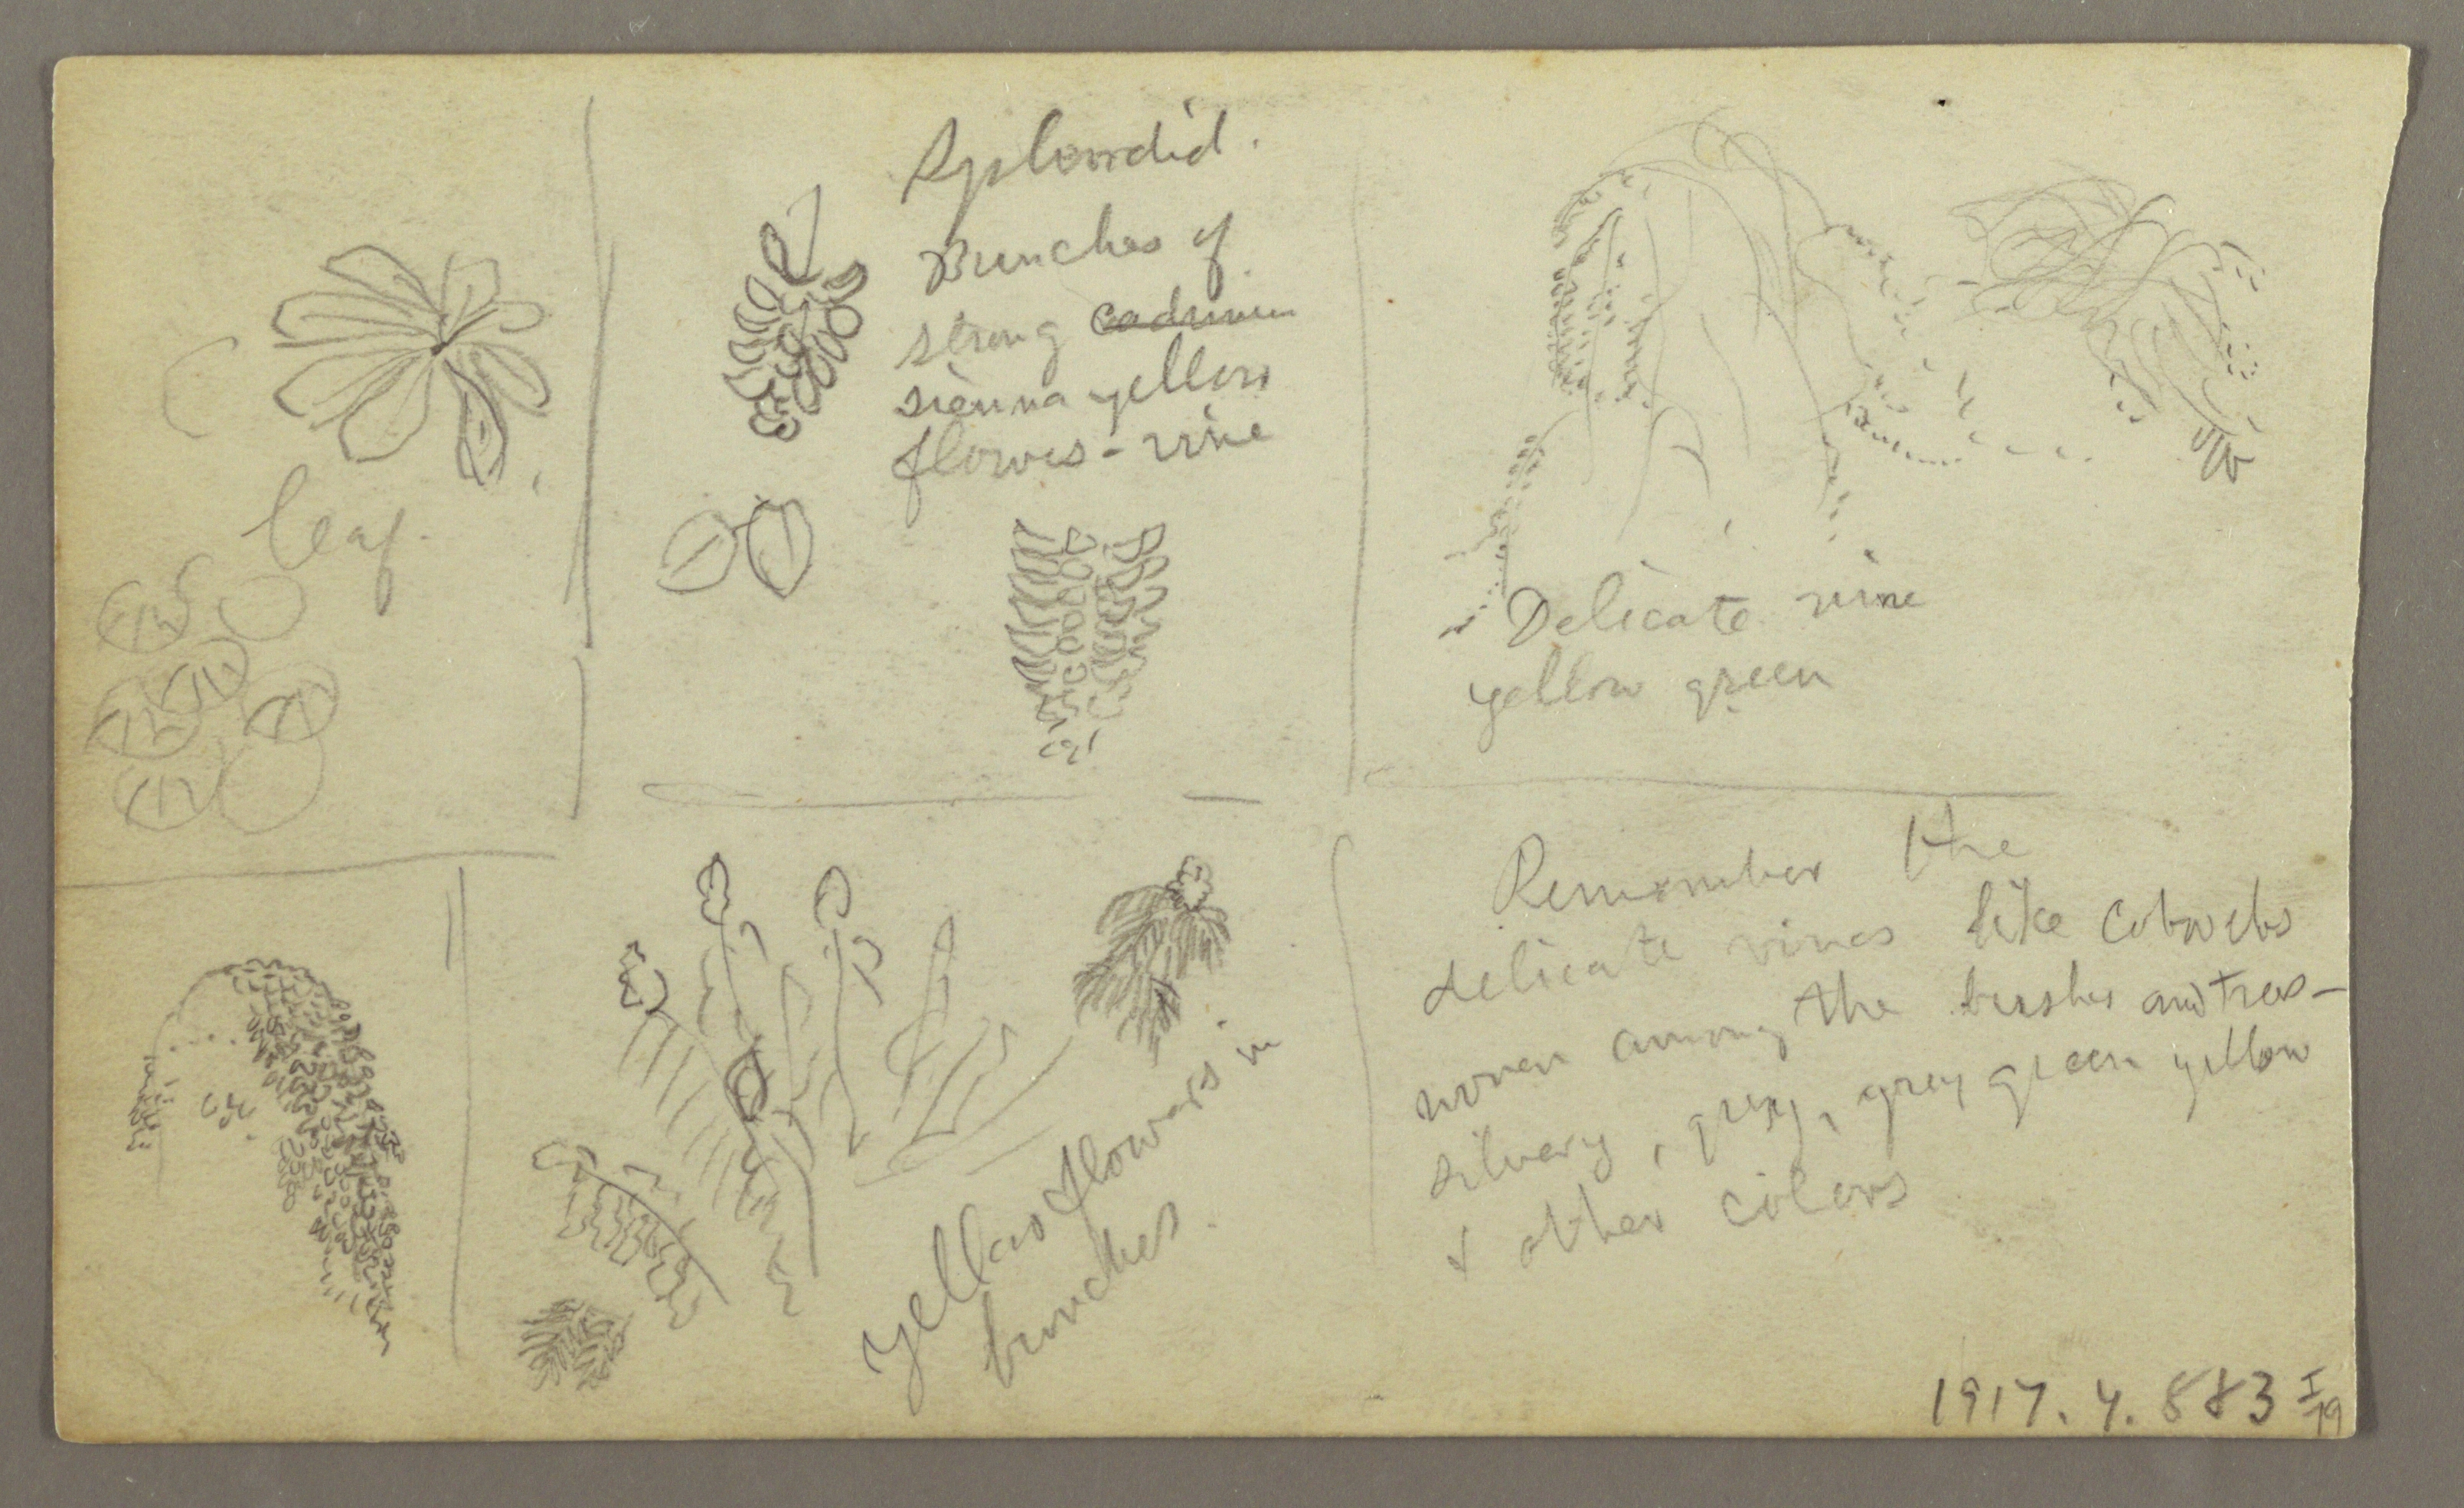 Splendid.
Bunches of
strong cadmium
sienna yellow
flowers - vine
leaf.
Delicate vine
yellow green
Remember the
delicate vines like cobwebs
woven among the bushes and trees -
silvery, grey, grey green yellow
& other colors
yellow flowers in
bunches.
1917.4.883 I/19